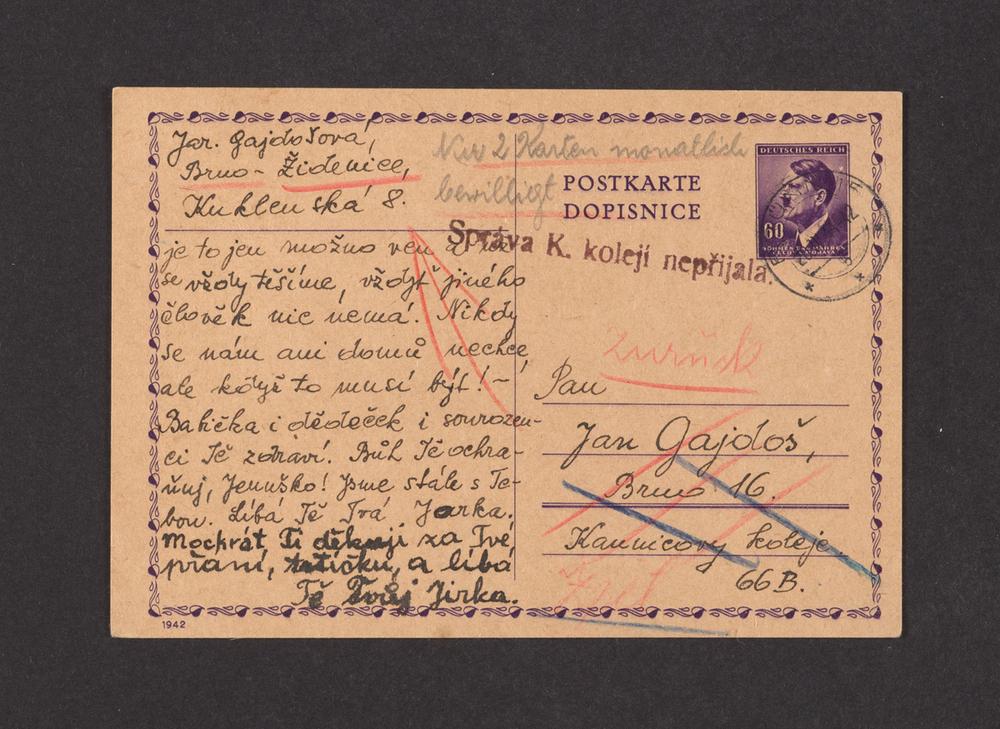 Jar. Gajdošová,
Brno - Židenice,
Kuklenská 8.
Nur 2 Karten monatlich
bewilligt
POSTKARTE
DOPISNICE
DEUTSCHES REICH
60
BÖHMEN UND MÄHREN
ČECHY A MORAVA
Správa K. kolejí nepřijala.
je to jen možno ven
se vždy těšíme, vždyť jiného
člověk nic nemá. Nikdy
se nám ani domů nechce,
ale když to musí být! -
Babička i dědeček i sourozen-
ci Tě zdraví. Bůh Tě ochra-
ňuj, Jenuško! Jsme stále s Te-
bou. Líbá Tě Tvá Jarka.
Mockrát Ti děkuji za Tvé
přání, tatíčku, a líbá
Tě Tvůj Jirka.
Zurück
Pan
Jan Gajdoš,
Brno 16.
Kaunicovy koleje
66B.
1942